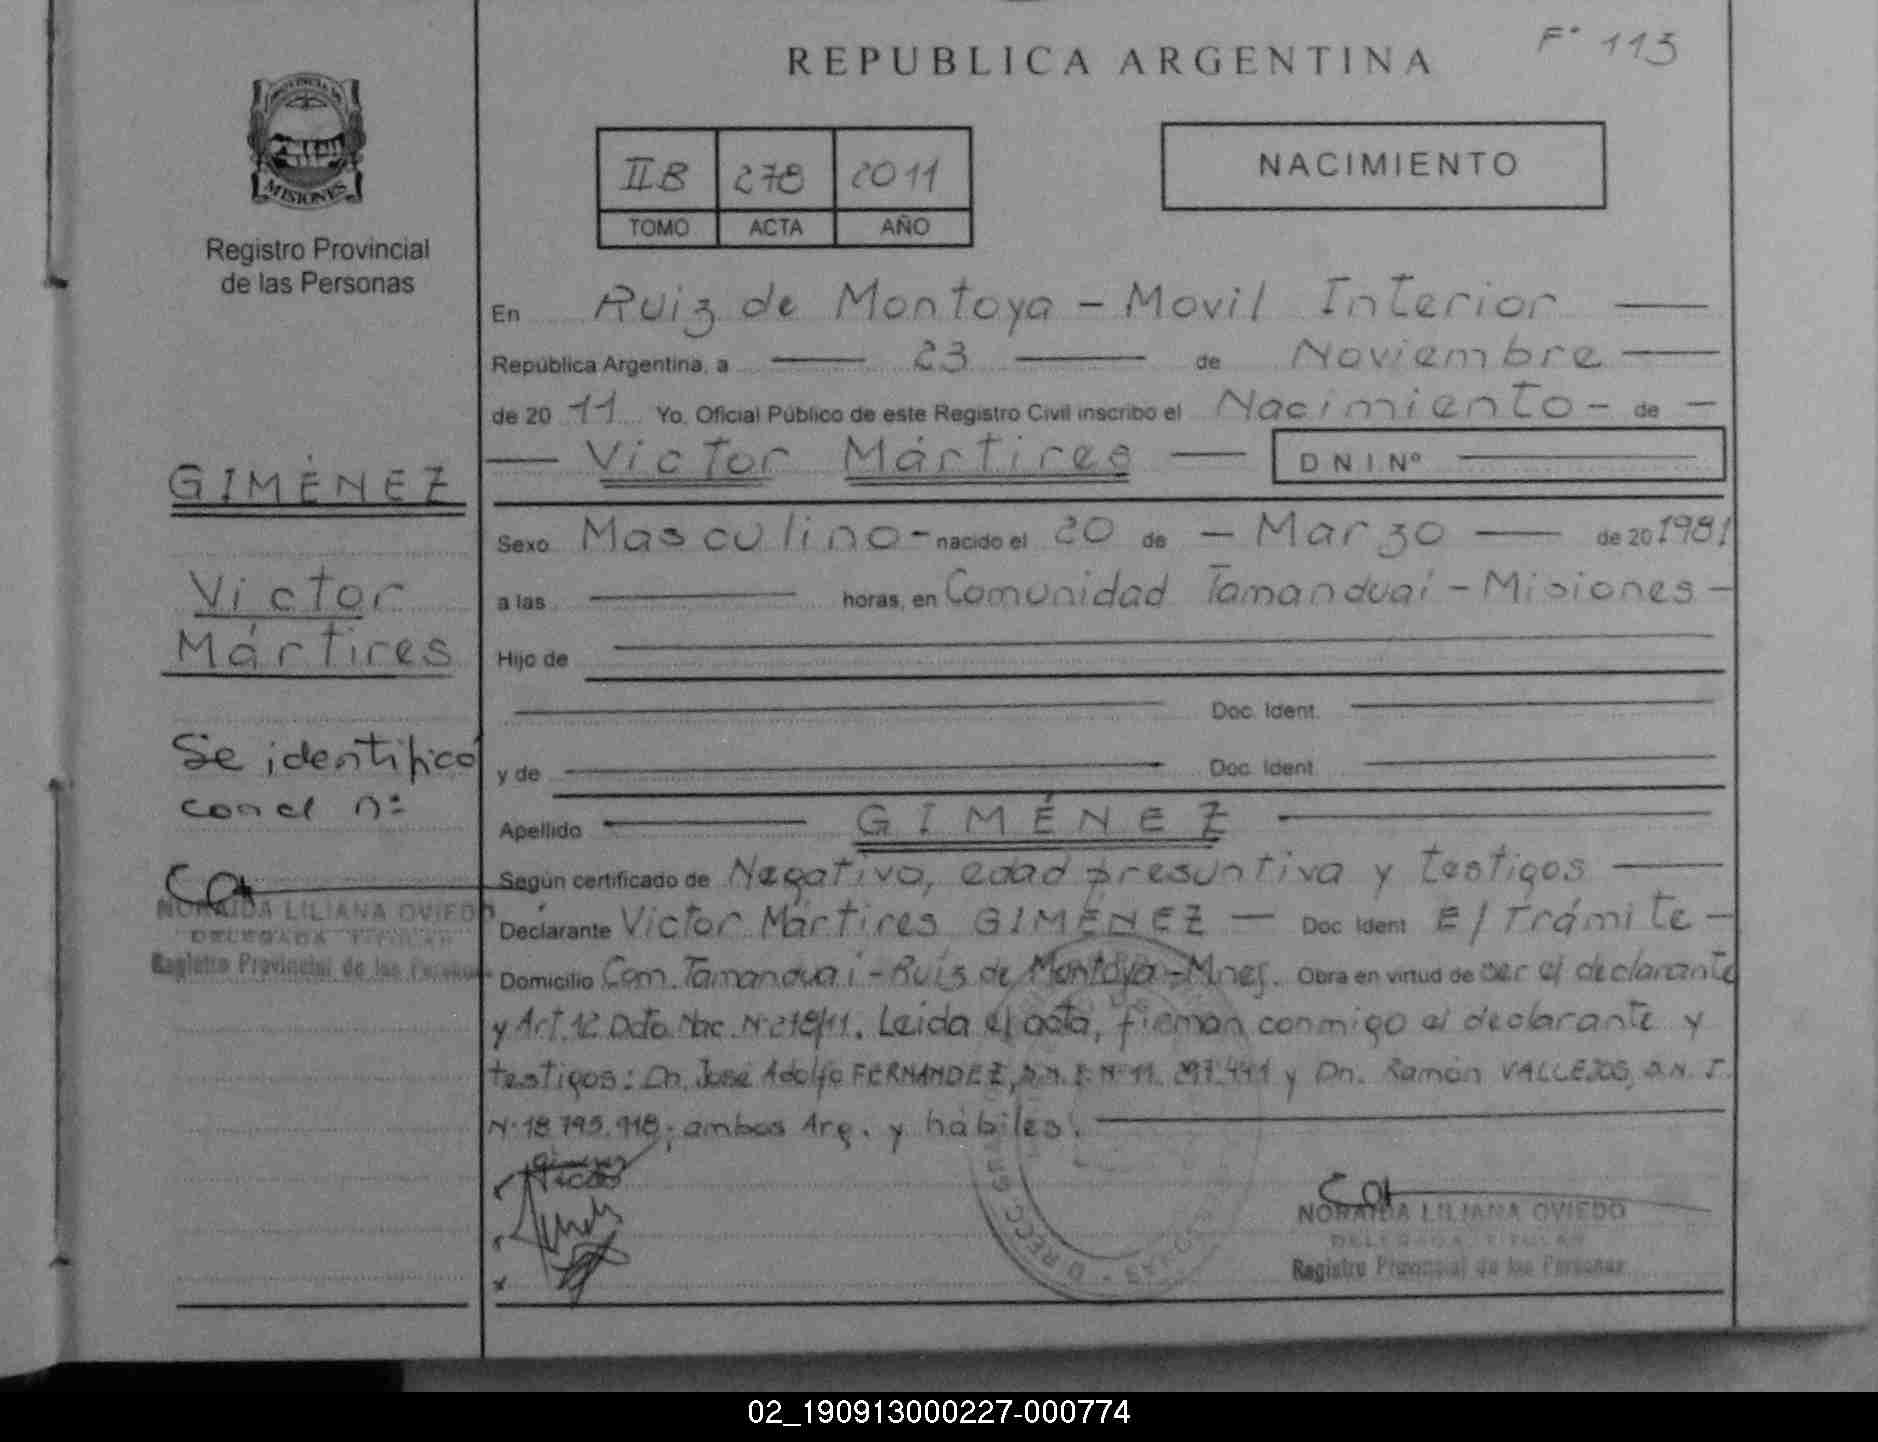 REPUBLICA ARGENTINA
F° 113
PROVINCIA DE
MISIONES
Registro Provincial
de las Personas
IIB 278 2011
TOMO ACTA AÑO
NACIMIENTO
En Ruiz de Montoya - Movil Interior
República Argentina, a 23 de Noviembre
de 20 11 Yo, Oficial Público de este Registro Civil inscribo el Nacimiento - de -
Victor Mártires D N I Nº
GIMÉNEZ
Victor
Mártires
Se identificó
con el nº
NORAIDA LILIANA OVIEDO
DELEGADA TITULAR
Registro Provincial de las Personas
Sexo Masculino - nacido el 20 de - Marzo de 20 1981
a las horas, en Comunidad Tamanduai - Misiones -
Hijo de
Doc. Ident.
y de Doc. Ident.
Apellido GIMÉNEZ
Según certificado de Negativo, edad presuntiva y testigos
Declarante Victor Mártires GIMÉNEZ - Doc Ident E/Trámite -
Domicilio Com. Tamanduai - Ruis de Montoya - Mnes. Obra en virtud de ser el declarante
y Art. 12 Dcto. Nac. Nº 278/11. Leida el acta, firman conmigo el declarante y
testigos: Dn. José Adolfo FERNANDEZ, D.N.I. Nº 11. y Dn. Ramón VALLEJOS, D.N.I.
Nº 18.795.918; ambos Arg. y hábiles.
NORAIDA LILIANA OVIEDO
DELEGADA TITULAR
Registro Provincial de las Personas
02_190913000227-000774